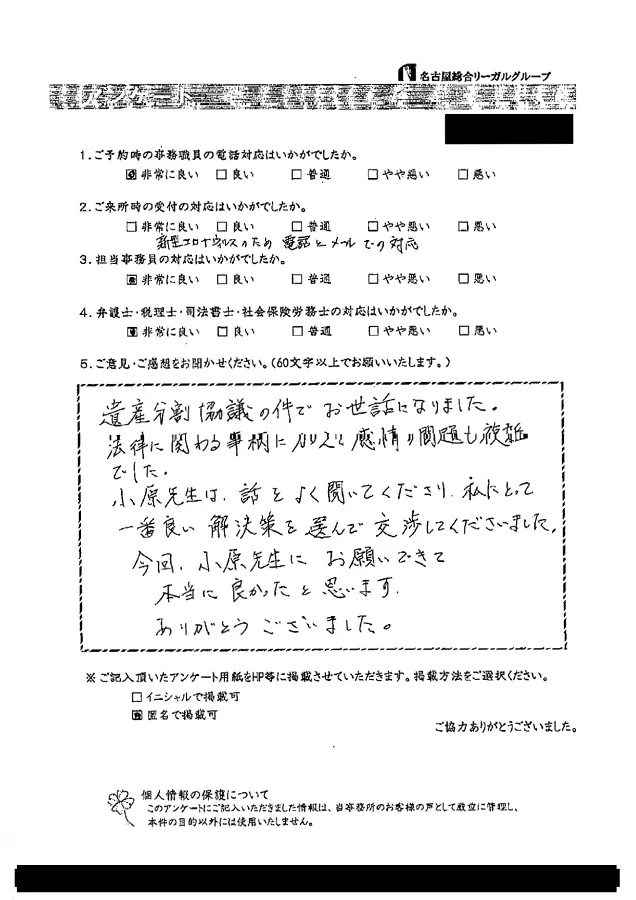 名古屋総合リーガルグループ
アンケート
1.ご予約時の事務職員の電話対応はいかがでしたか。
非常に良い □良い □普通 □やや悪い □悪い
2.ご来所時の受付の対応はいかがでしたか。
□非常に良い □良い □普通 □やや悪い □悪い
新型コロナウィルスのため 電話とメールでの対応
3.担当事務員の対応はいかがでしたか。
非常に良い □良い □普通 □やや悪い □悪い
4.弁護士・税理士・司法書士・社会保険労務士の対応はいかがでしたか。
非常に良い □良い □普通 □やや悪い □悪い
5.ご意見・ご感想をお聞かせください。(60文字以上でお願いいたします。)
遺産分割協議の件でお世話になりました。
法律に関わる事柄に 感情の問題も複雑
でした。
小原先生は、話をよく聞いてくださり、私にとって
一番良い解決策を選んで交渉してくださいました。
今回、小原先生にお願いできて
本当に良かったと思います。
ありがとうございました。
※ご記入頂いたアンケート用紙をHP等に掲載させていただきます。掲載方法をご選択ください。
□イニシャルで掲載可
匿名で掲載可
ご協力ありがとうございました。
個人情報の保護について
このアンケートにご記入いただきました情報は、当事務所のお客様の声として厳立に管理し、
本件の目的以外には使用いたしません。